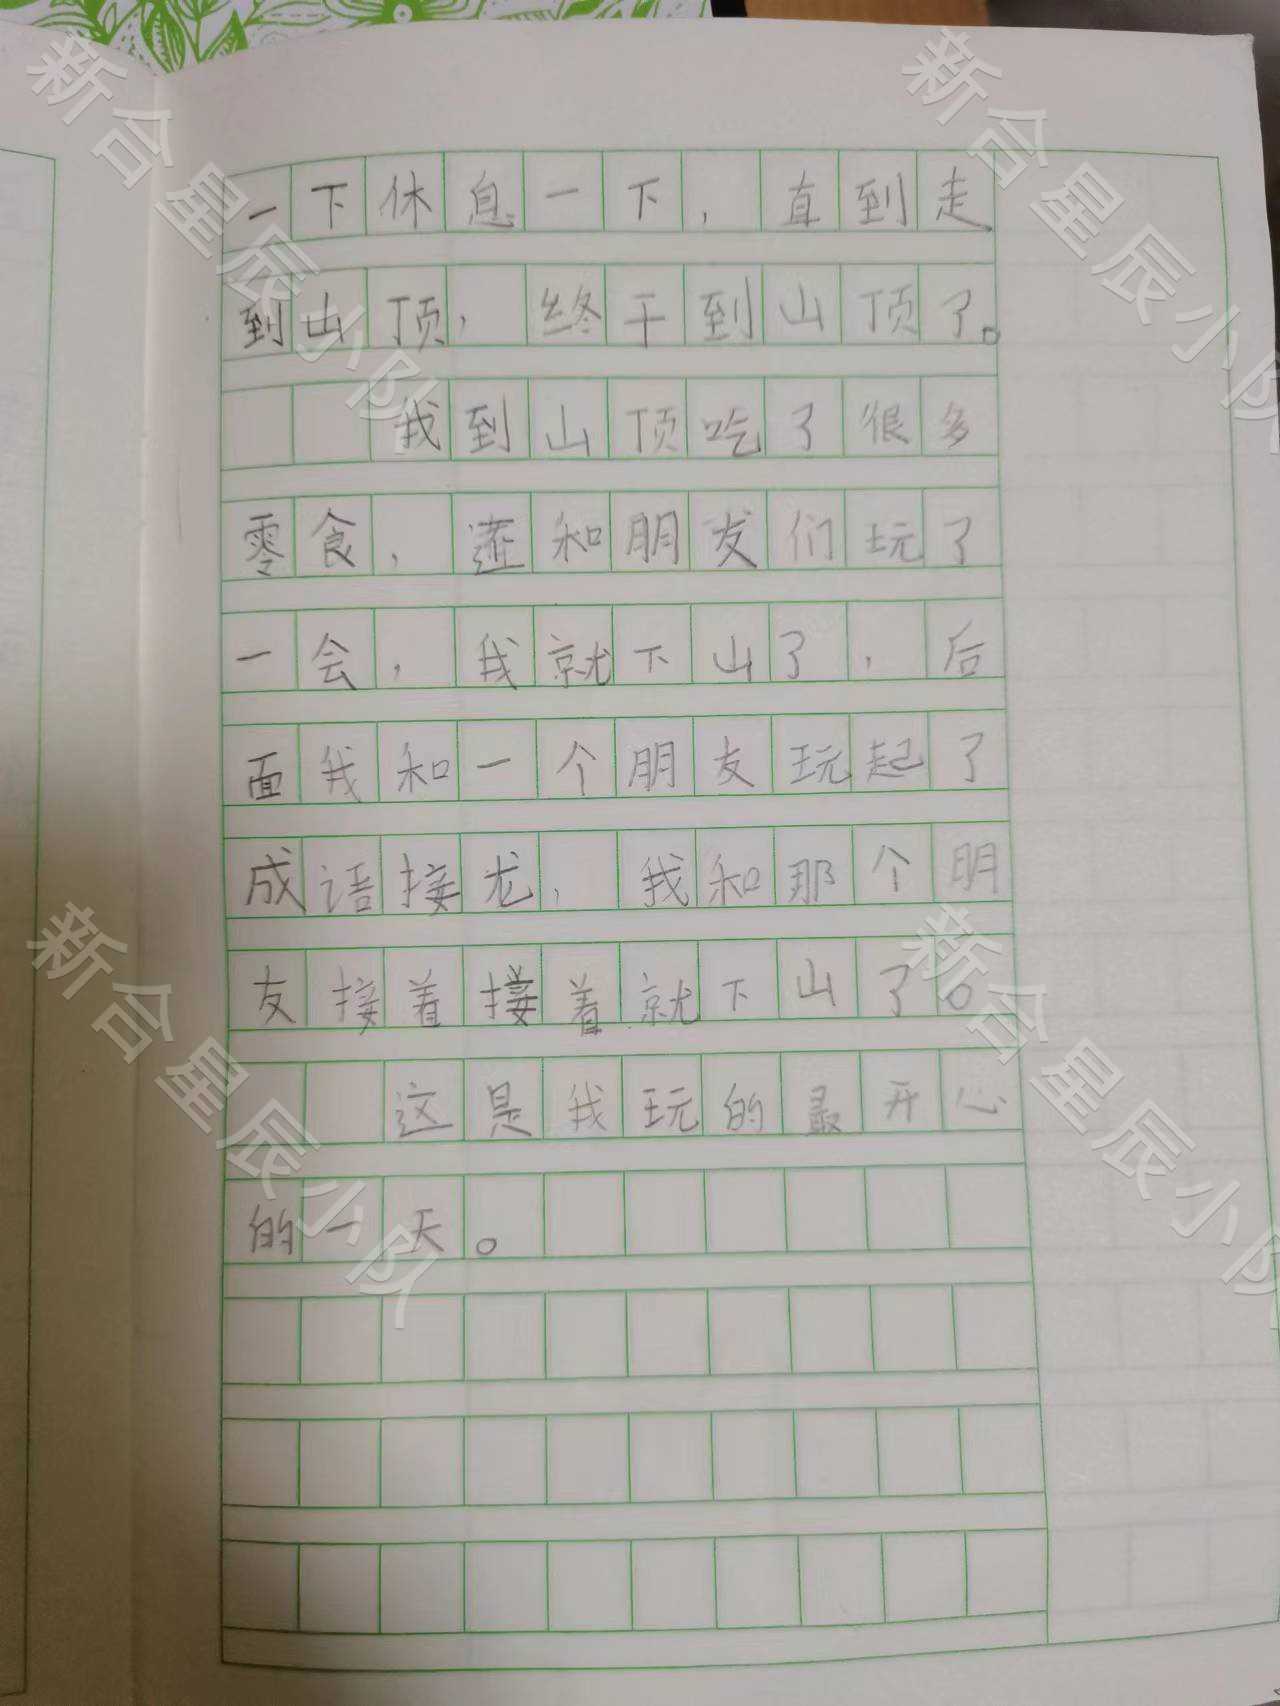 一下休息一下，直到走
到山顶，终于到山顶了。
我到山顶吃了很多
零食，和朋友们玩了
一会，我就下山了，后
面我和一个朋友玩起了
成语接龙，我和那个朋
友接着接着就下山了。
这是我玩的最开心
的一天。
新合星辰小队
新合星辰小队
新合星辰小队
新合星辰小队